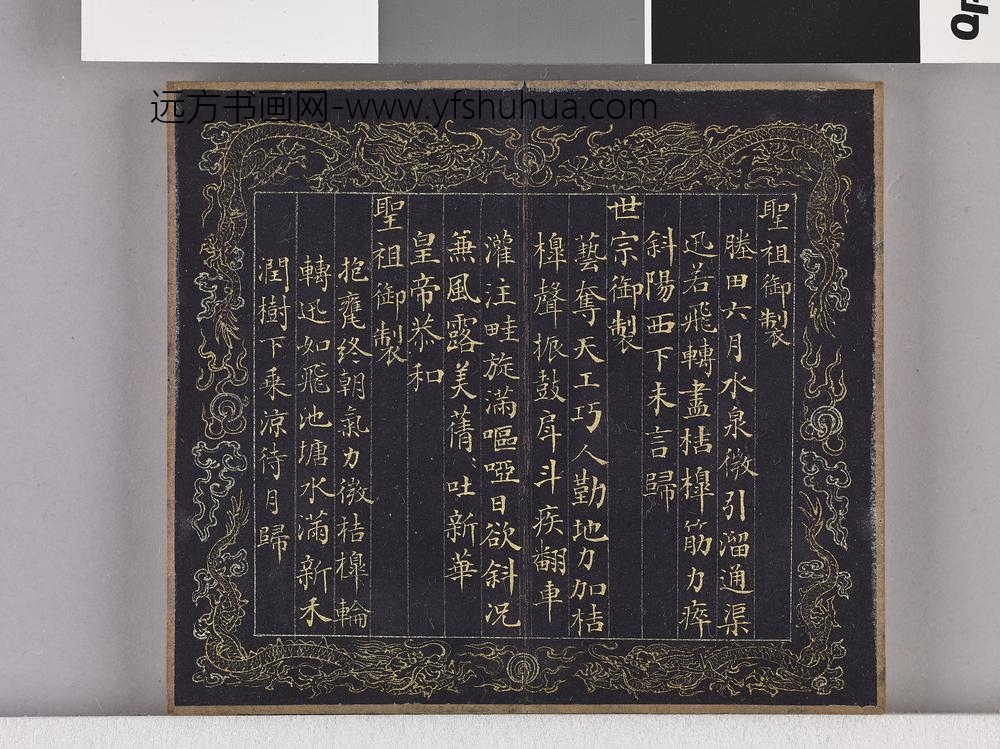 远方书画网-www.yfshuhua.com
聖祖御製
塍田六月水泉微引溜通渠
迅若飛轉盡桔槹筋力瘁
斜陽西下未言歸
世宗御製
藝奪天工巧人勤地力加桔
槹聲振鼓戽斗疾翻車
灌注畦旋滿嘔啞日欲斜況
兼風露美蒨〻吐新華
皇帝恭和
聖祖御製
抱甕終朝氣力微桔槹輪
轉迅如飛池塘水滿新禾
潤樹下乘涼待月歸